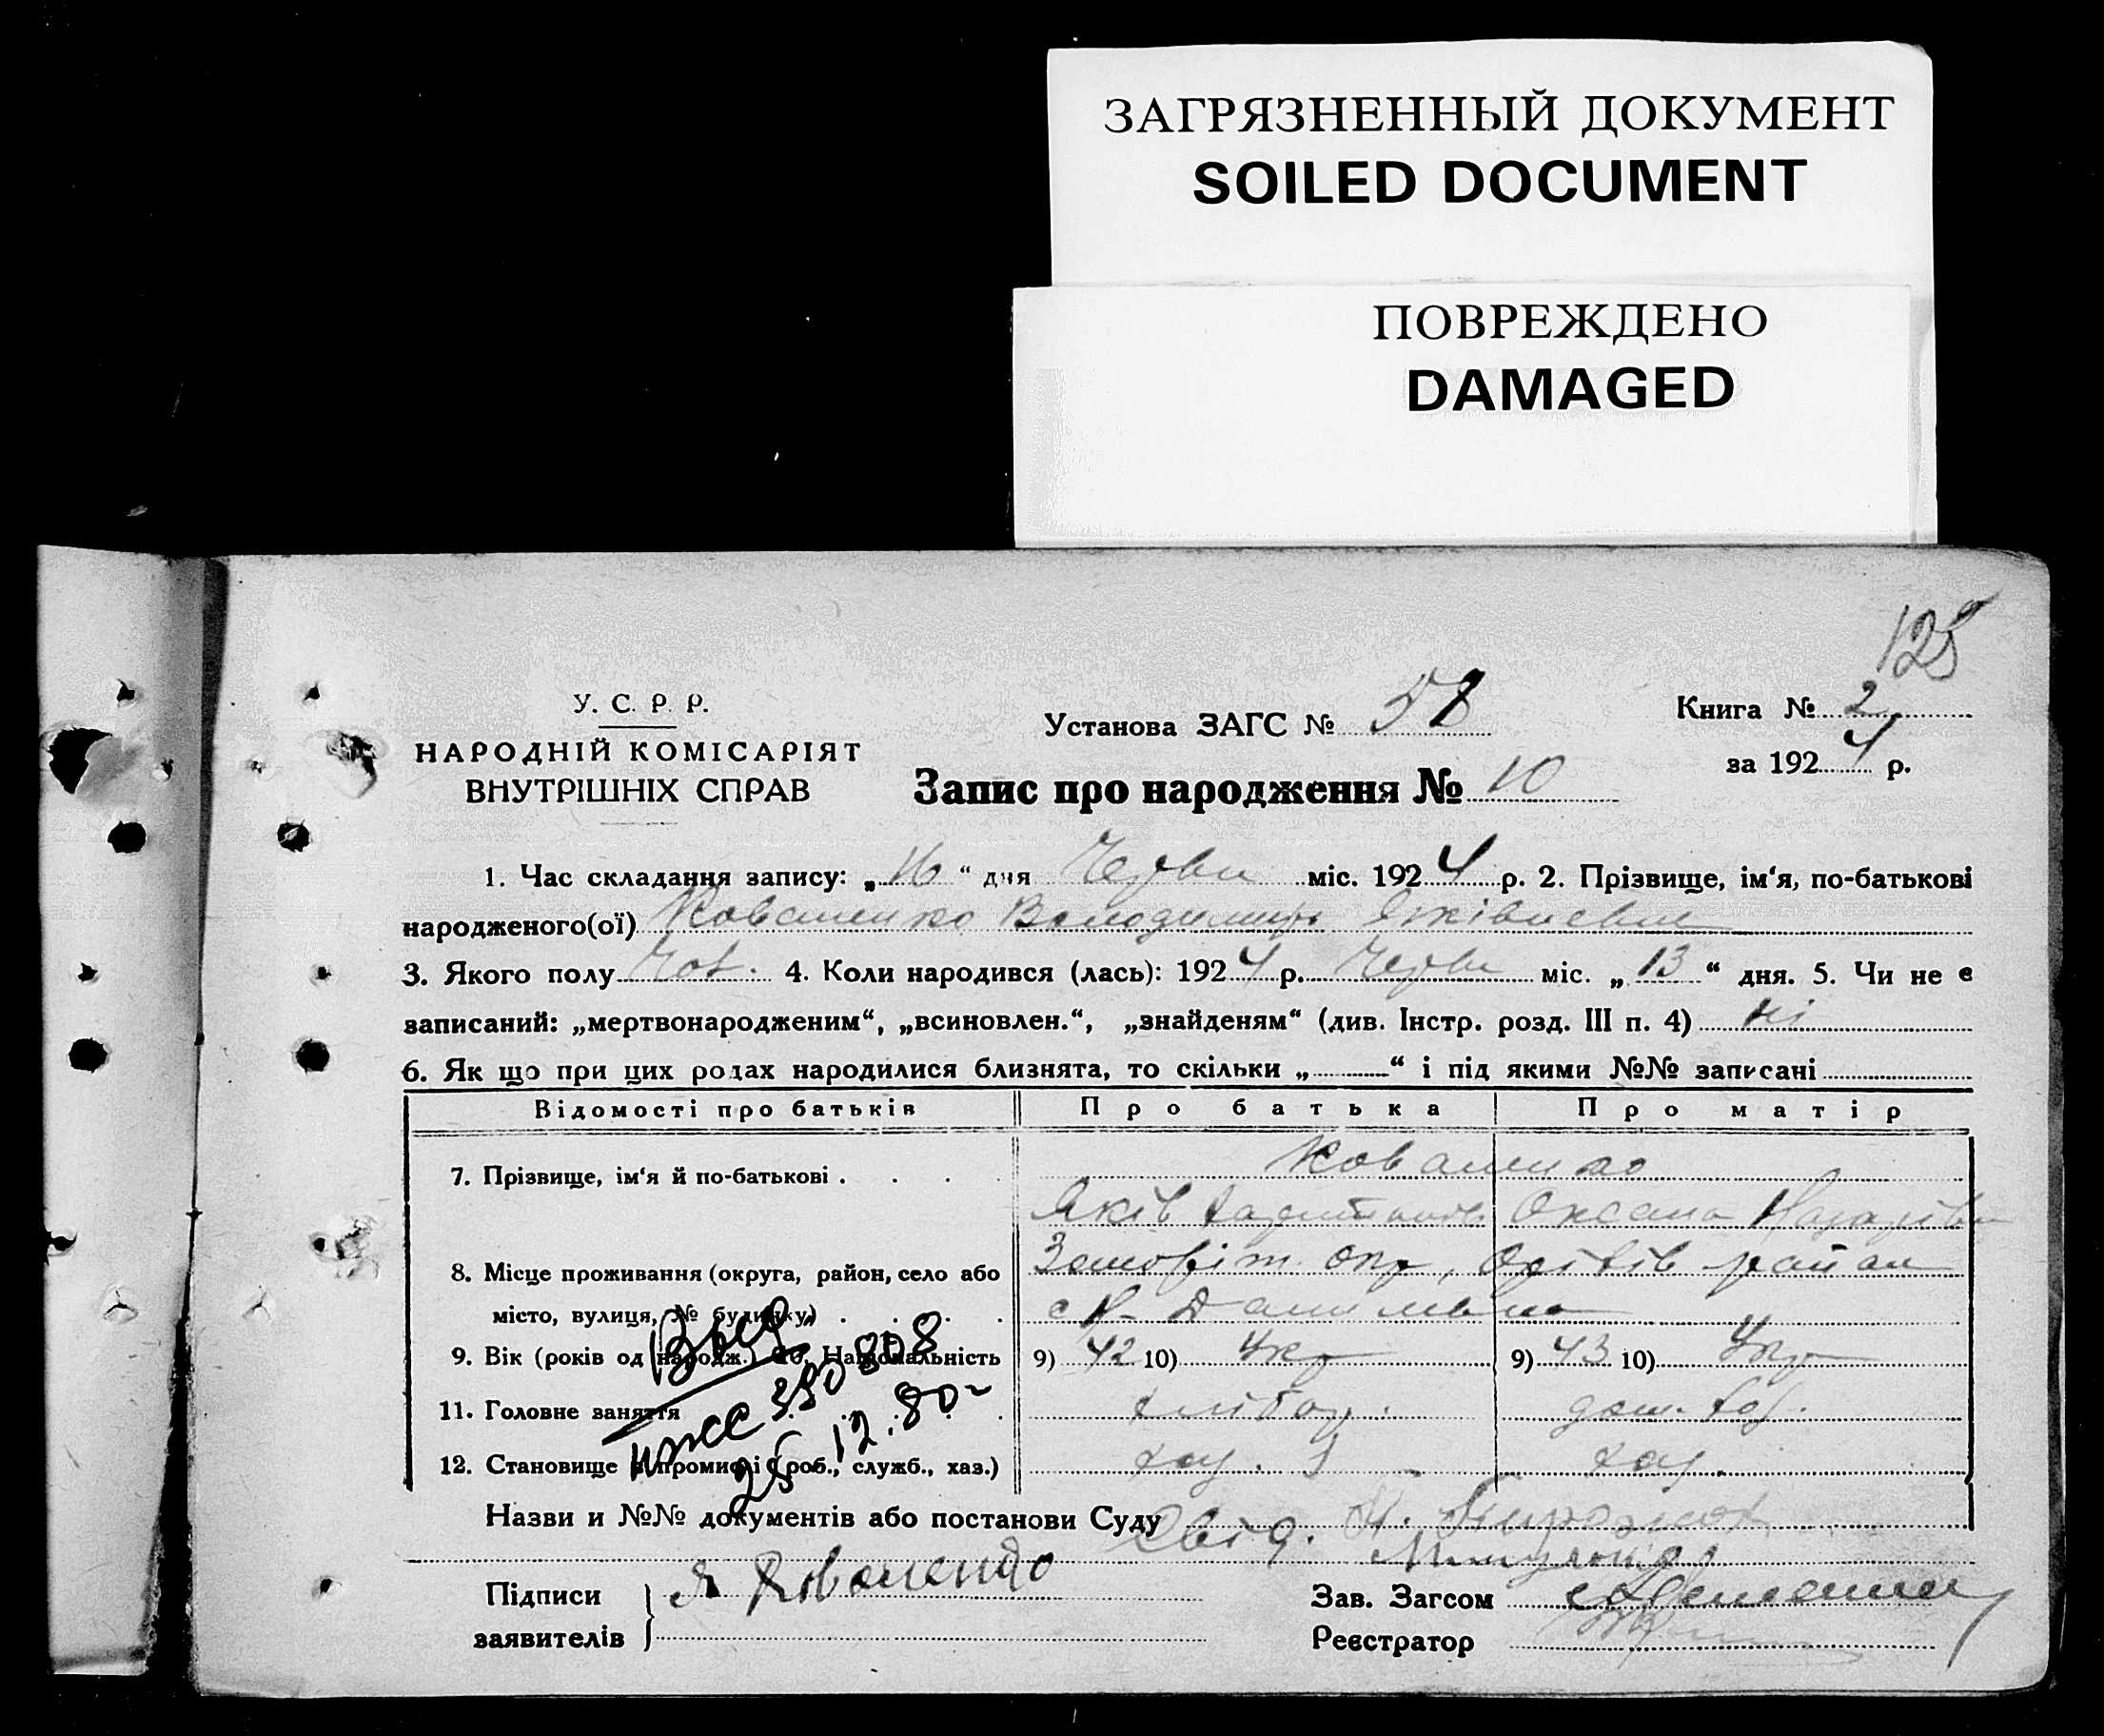 ЗАГРЯЗНЕННЫЙ ДОКУМЕНТ
SOILED DOCUMENT
ПОВРЕЖДЕНО
DAMAGED
125
У. С. Р. Р.
НАРОДНІЙ КОМІСАРІЯТ
ВНУТРІШНІХ СПРАВ
Установа ЗАГС № 58
Книга № 2
за 1924 р.
Запис про народження № 10
1. Час складання запису: „16“ дня Червн міс. 1924 р. 2. Прізвище, ім‘я, по-батькові
народженого(ої) Коваленко Володимир Яківлевич
3. Якого полу Чол. 4. Коли народився (лась): 1924 р. Червн міс. „13“ дня. 5. Чи не є
записаний: „мертвонародженим“, „всиновлен.“, „знайденям“ (див. Інстр. розд. III п. 4) ні
6. Як що при цих родах народилися близнята, то скільки „ “ і під якими №№ записані
Відомості про батьків Про батька Про матір
7. Прізвище, ім‘я й по-батькові . . . . Коваленко
Яків Оксана Назарівн
8. Місце проживання (округа, район, село або окр, район
місто, вулиця, № будинку) . . . . с
9. Вік (років од народж.) 10. Національність 9) 42 10) Укр 9) 43 10) Укр
11. Головне заняття хлібор. дом. гос.
12. Становище в промислі (роб., служб., хаз.) хаз. хаз.
350808
25 12.80
Назви и №№ документів або постанови Суду Свід.
Підписи
заявителів
Я Коваленко
Зав. Загсом
Реєстратор